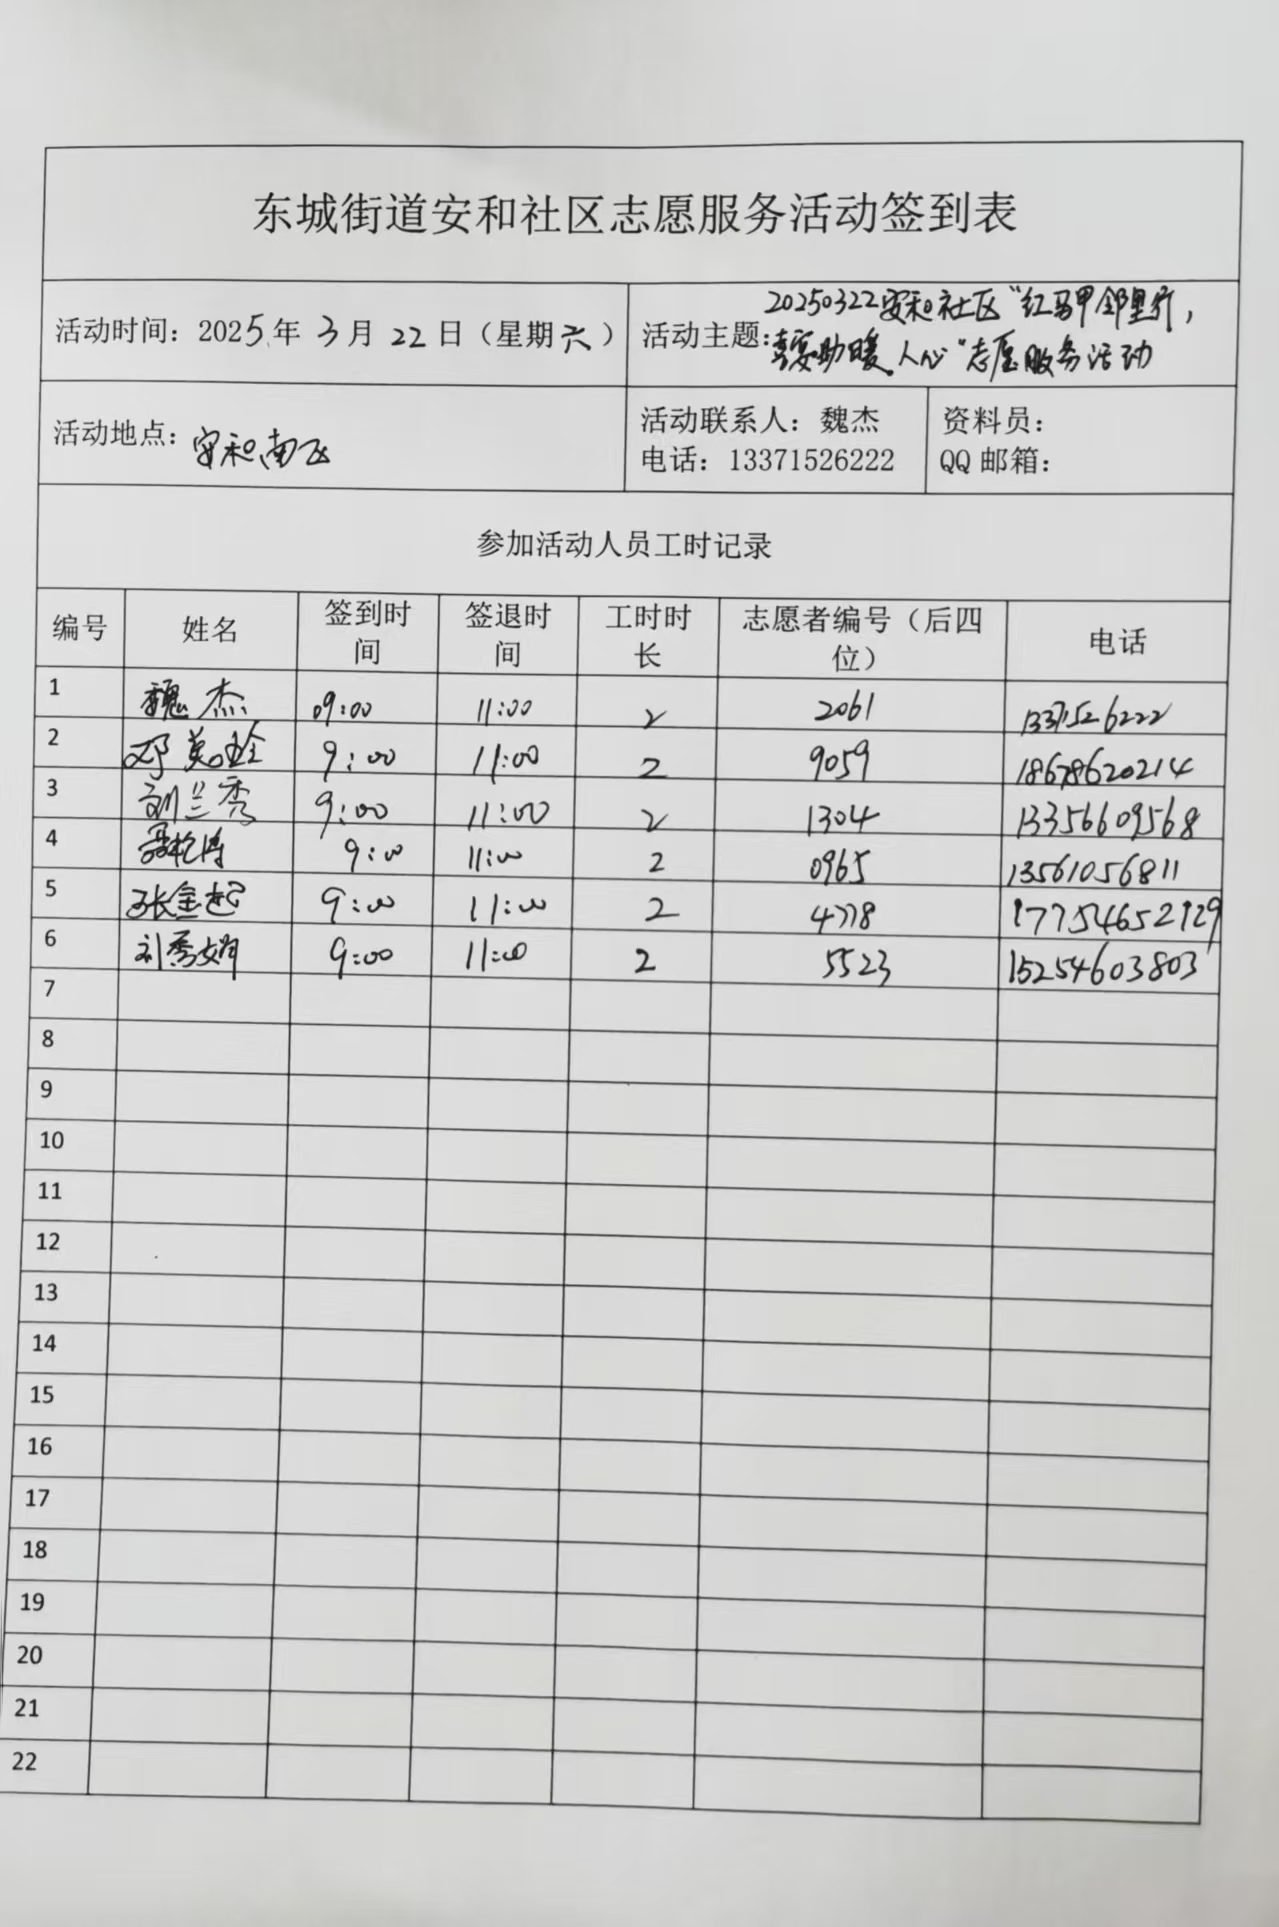 东城街道安和社区志愿服务活动签到表
活动时间：2025年 3月 22日（星期六）
活动主题：20250322安和社区“红马甲邻里行，
助暖人心”志愿服务活动
活动地点：安和南区
活动联系人：魏杰
电话：13371526222
资料员：
QQ邮箱：
参加活动人员工时记录
编号 姓名 签到时间 签退时间 工时时长 志愿者编号（后四位） 电话
1 魏杰 09:00 11:00 2 2061 13371526222
2 邓英 9:00 11:00 2 9059 18678620214
3 刘兰秀 9:00 11:00 2 1304 13356609568
4 9:00 11:00 2 0965 13561056811
5 张金起 9:00 11:00 2 4778 17754652129
6 刘秀娟 9:00 11:00 2 5523 15254603803
7
8
9
10
11
12
13
14
15
16
17
18
19
20
21
22